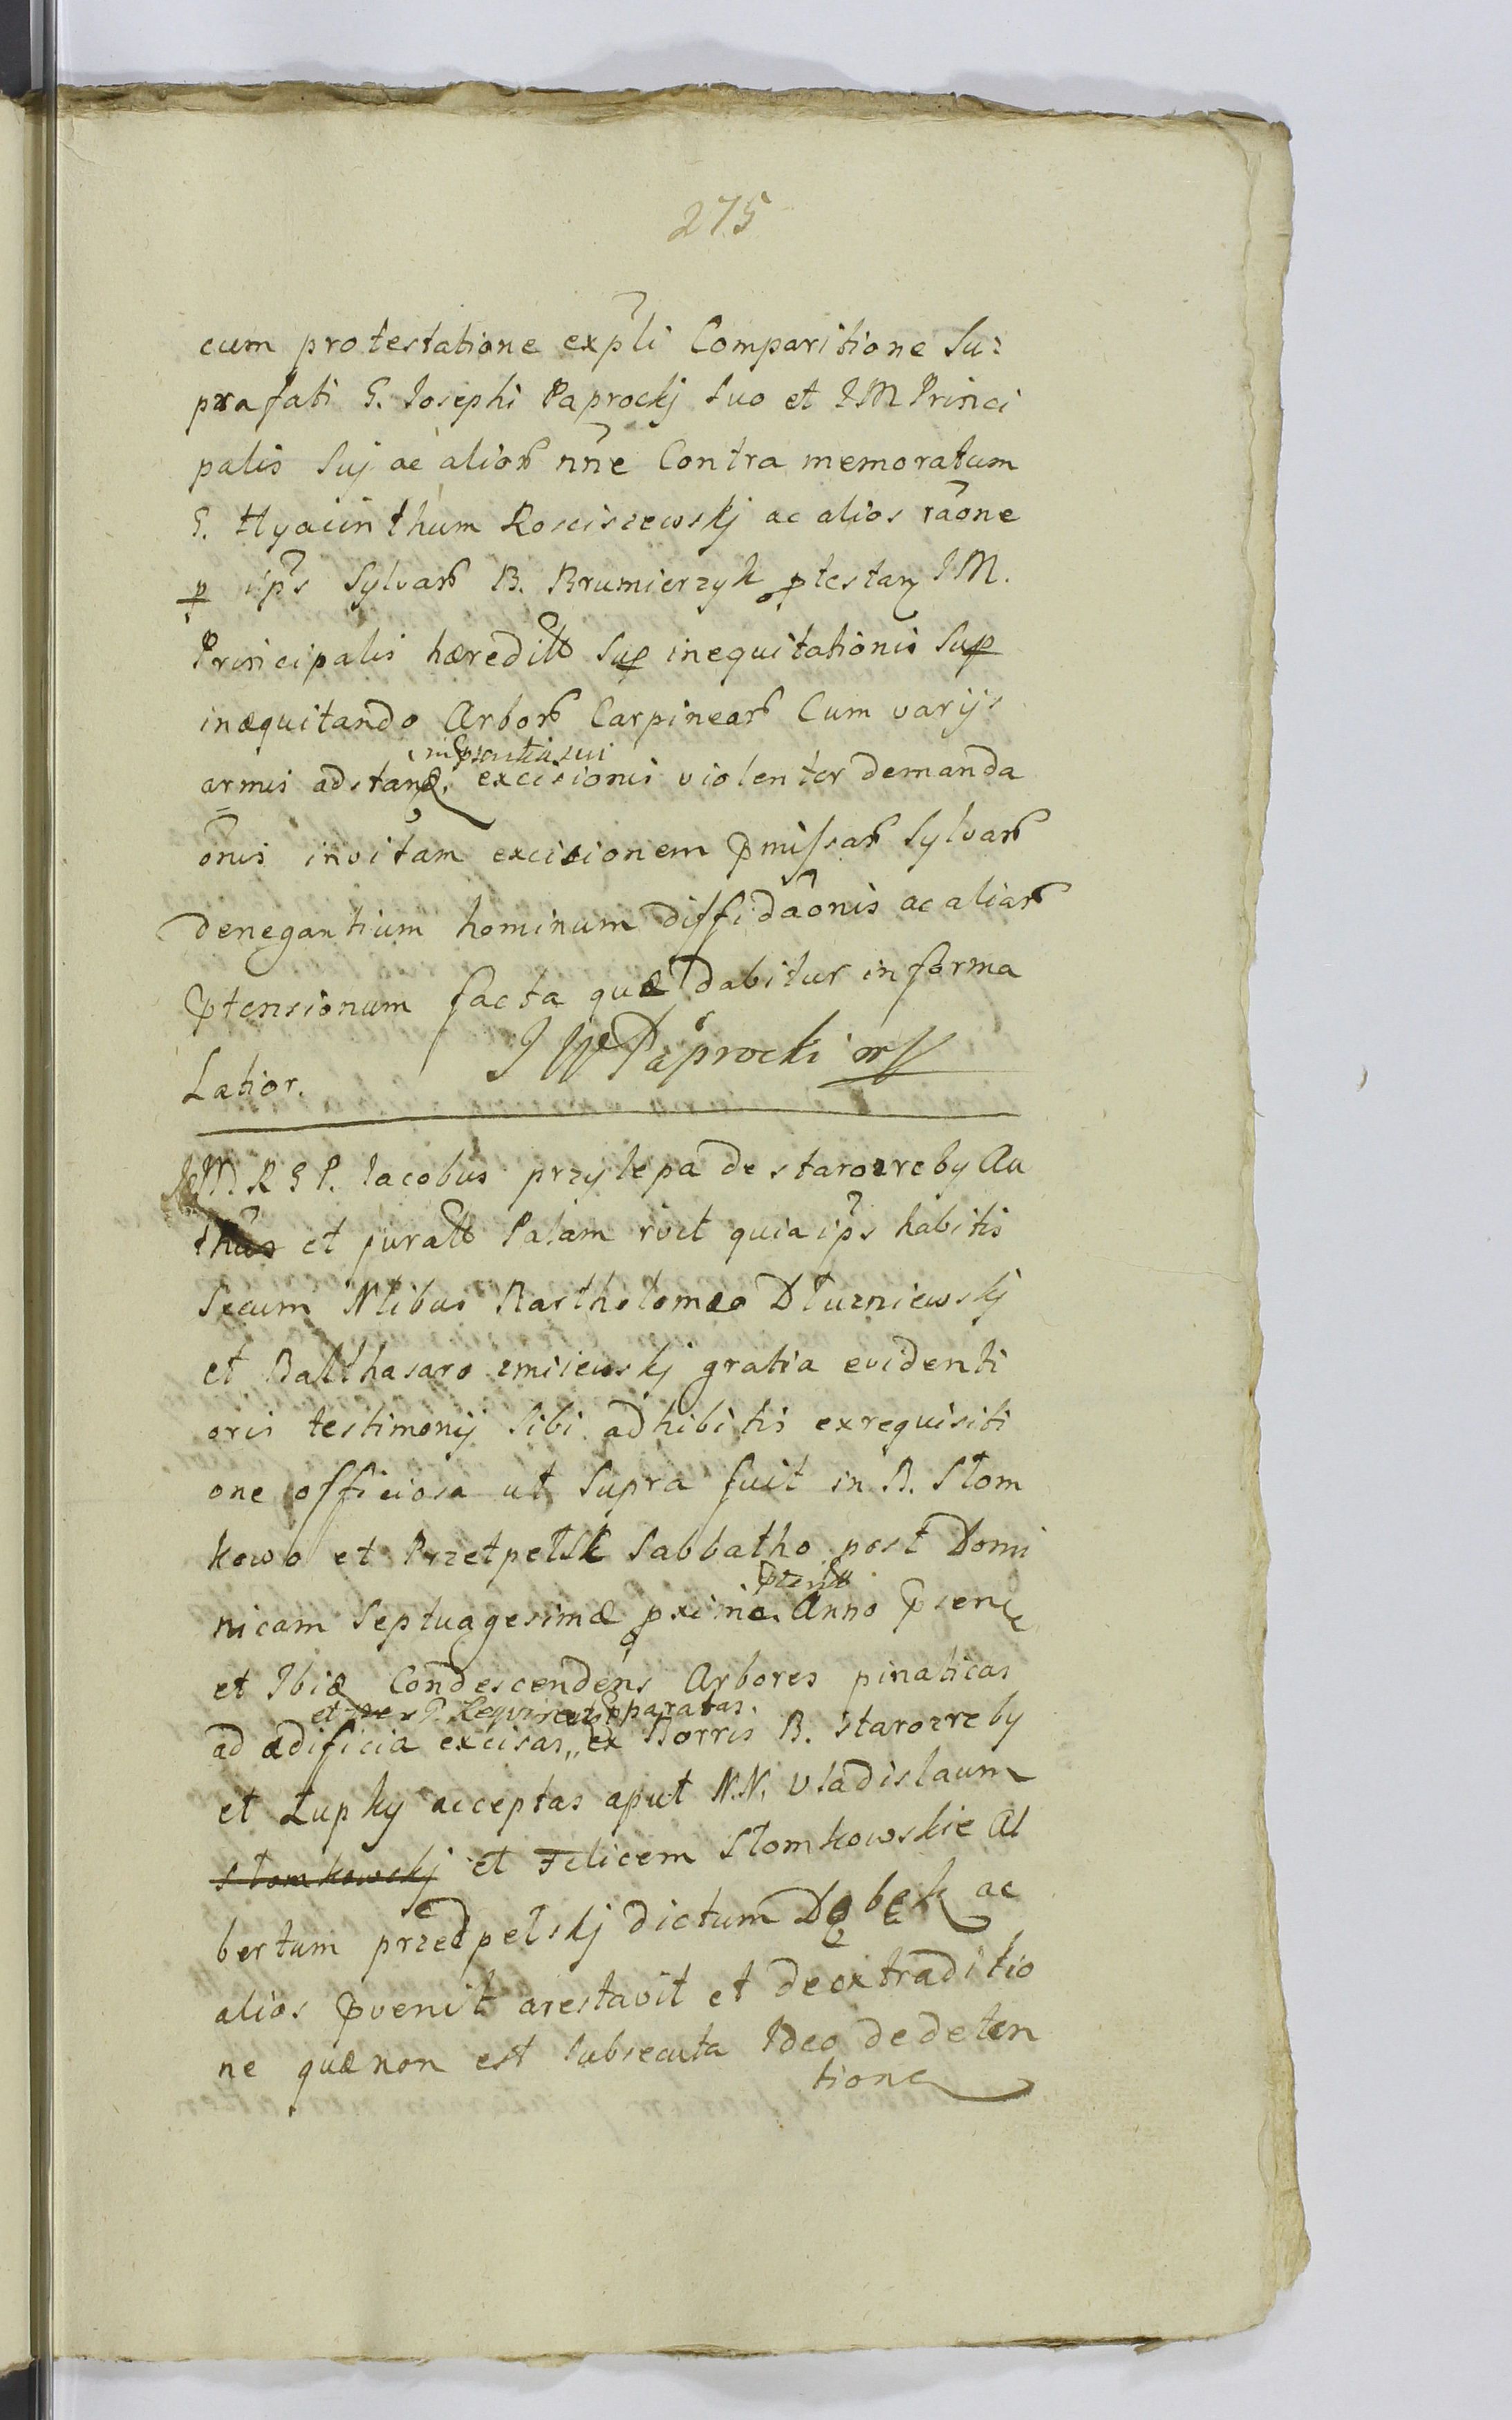 275
cum protestatione expli Comparitione Su:
prafati G. Josephi Paprockj Suo et JM Princi
palis Suj ac alior nne Contra memoratum
G. Hyacinthum Rosciszewskj ac alios raone
p ips Sylvar B. Brumierzyk ptestan JM.
Principalis hæredit Sup inequitationis Sup
inæquitando Arbor Carpinear Cum varijs
in pscntia sui
armis adstan. excisionis violenter demanda
onis invitam excisionem pmissar Sylvar
denegantium hominum diffidaonis ac aliar
ptensionum facta quæ dabitur in forma
Latior. J W Paprocki
JM. R G P. Jacobus przylepa de starozreby Au
et jurat Palam rect quia ips habitis
Secum Nlibus Bartholomæo Dłuzniewskj
et Balthasaro zmiiewskj gratia evidenti
oris testimonij Sibi adhibitis exrequisiti
one officiosa ut Supra fuit in B. Słom
kowo et Przetpełsk Sabbatho post Domi
nicam Septuagesimæ pximæ. Anno psen
et Ibiæ Condescendens Arbores pinaticas
et pparatas.
ad ædificia excisas,, ex Borris B. starozreby
et Łupky acceptas aput N.N. Vladislaum
Słomkowskj et Felicem Słomkowskie Al
bertum przedpełskj dictum Dębek ac
alios pvenit arestavit et de extraditio
ne quæ non est Subsecuta Ideo de deten
tione